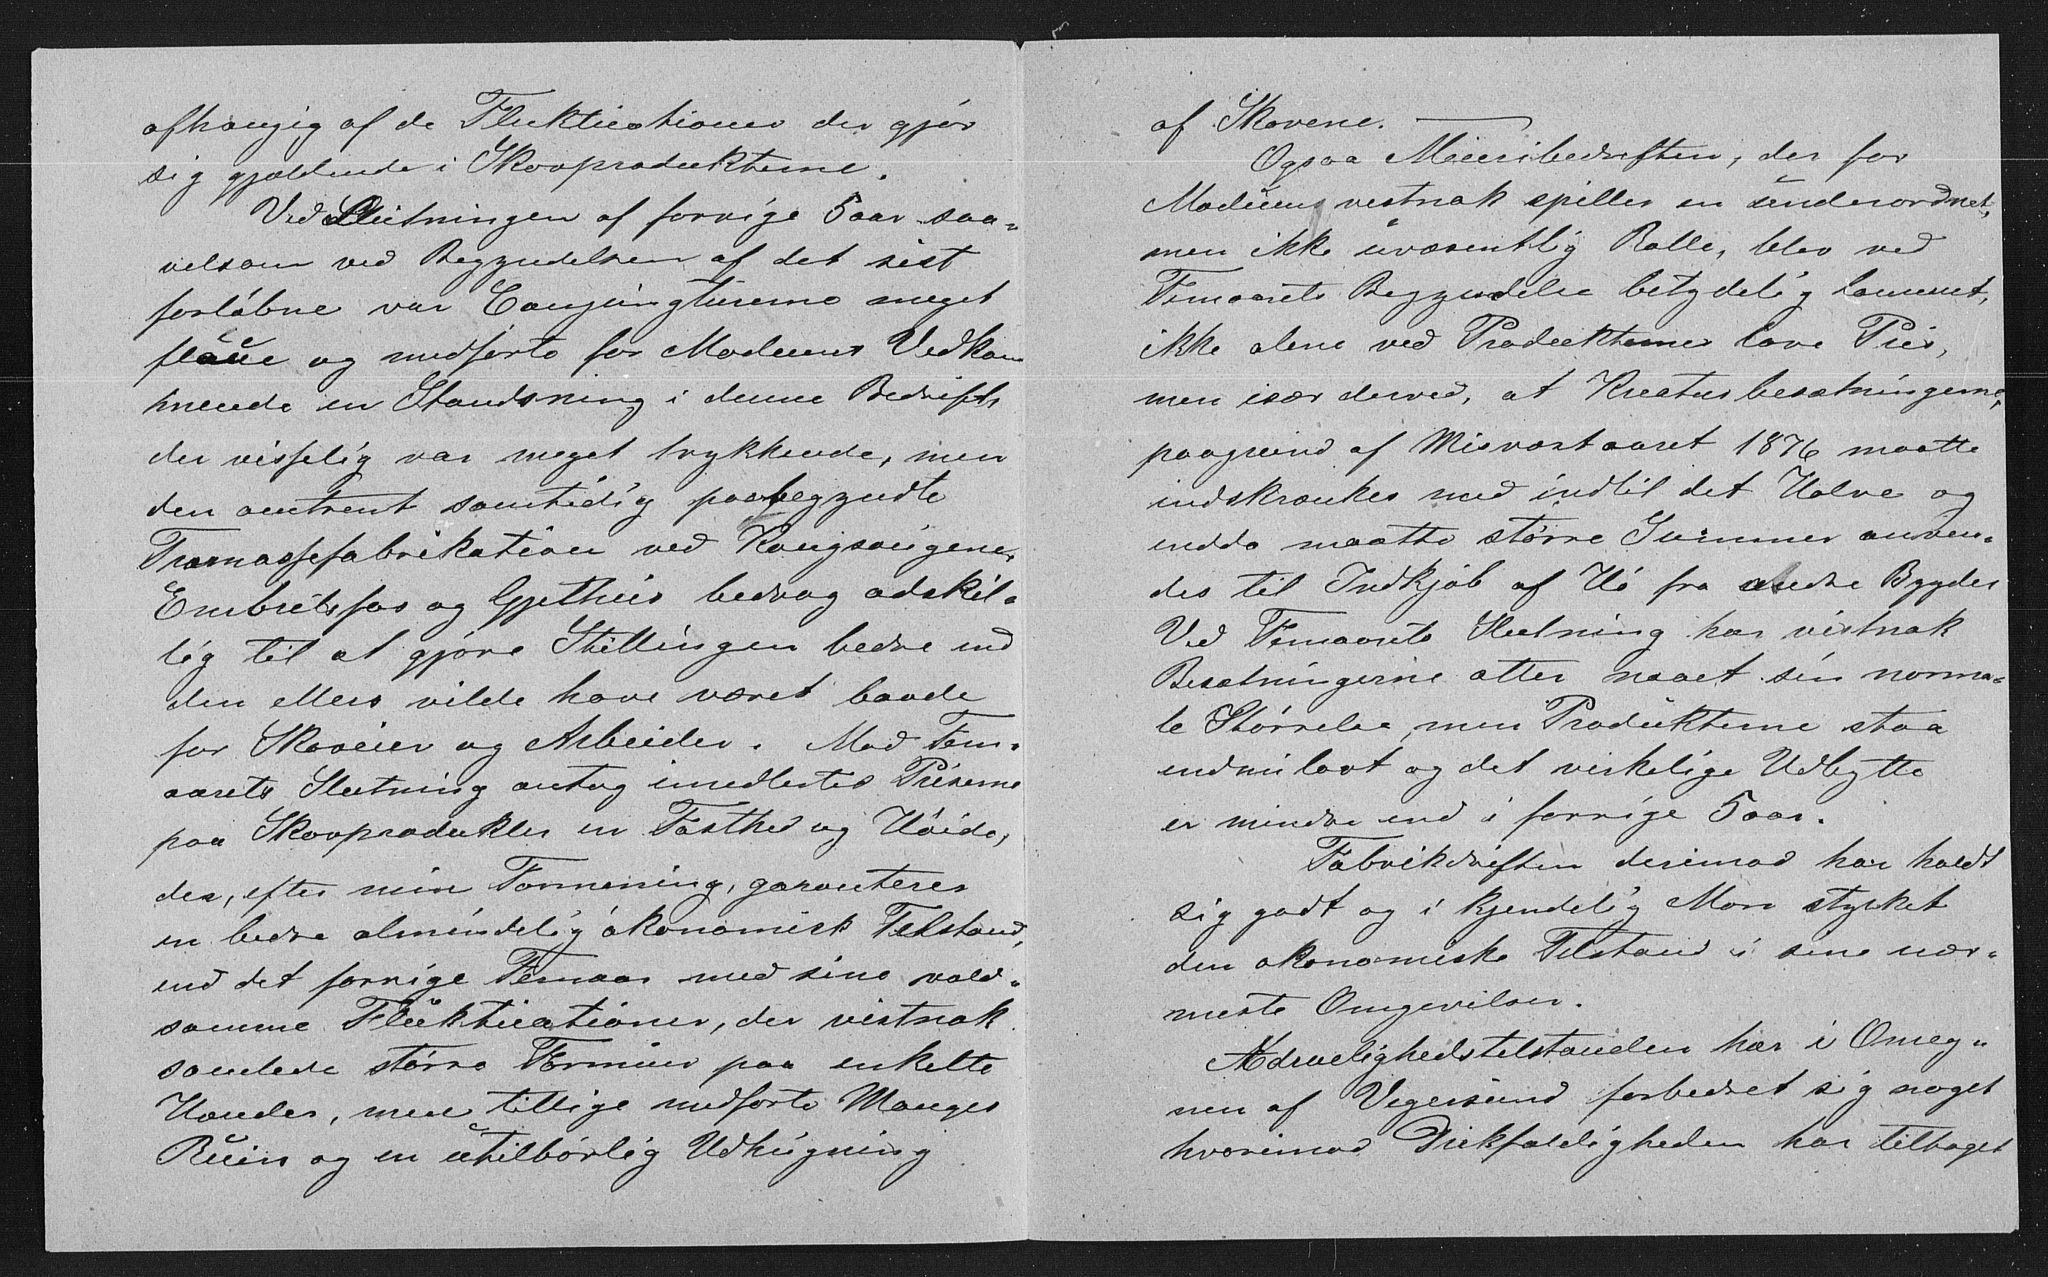 afhængig af de Flucktuationer der gjør
sig gjældende i Skovprodukterne.
Ved Slutningen af forrige 5aar saa-
velsom ved Begyndelsen af det sist
forløbne var Conjungturerne meget
flaue og medførte for Modums Vedkom
mende en Standsning i denne Bedrift,
der visselig var meget trykkende, men
den omtrent samtidig paabegyndte
Træmassefabrikation ved Kongssagene,
Embretsfos og Gjethus bedrog adskil-
lig til at gjøre Stillingen bedre end
den ellers vilde have været baade
for Skoveier og Arbeider. Mod Fem-
aarets Slutning antog imidlertid Priserne
paa Skovprodukter en Fasthed og Høide,
der, efter min Formening, garanterer
en bedre almindelig økonomisk Tilstand,
end det forrige Femaar med sine vold-
somme Flucktuationer, der vistnok
samlede større Formuer paa enkelte
Hænder, men tillige medførte Manges
Ruin og en utilbørlig Udhugning
af Skovene.
Ogsaa Meieribedriften, der for
Modums vestnok spiller en underordnet,
men ikke uvæsentlig Rolle, blev ved
Femaarets Begyndelse betydelig lammet,
ikke alene ved Produkternes lave Pris,
men især derved, at Kreaturbesætningerne,
paagrund af Misvæxtaaret 1876 maatte
indskrænkes med indtil det Halve og
endda maatte større Summer anven-
des til Indkjøb af Hø fra andre Bygder
Ved Femaarets Slutning har vistnok
Besætningerne atter naaet sin norma-
le Størrelse, men Produkterne staa
endnu lavt og det virkelige Udbytte
er mindre end i forrige 5aar.
Fabrikdriften derimod har holdt
sig godt og i kjendelig Mon styrket
den økonomiske Tilstand i sine nær-
meste Omgivelser.
Ædruelighedstilstanden har i Omeg-
nen af Vigersund forbedret sig noget
hvorimod Drikfældigheden har tiltaget